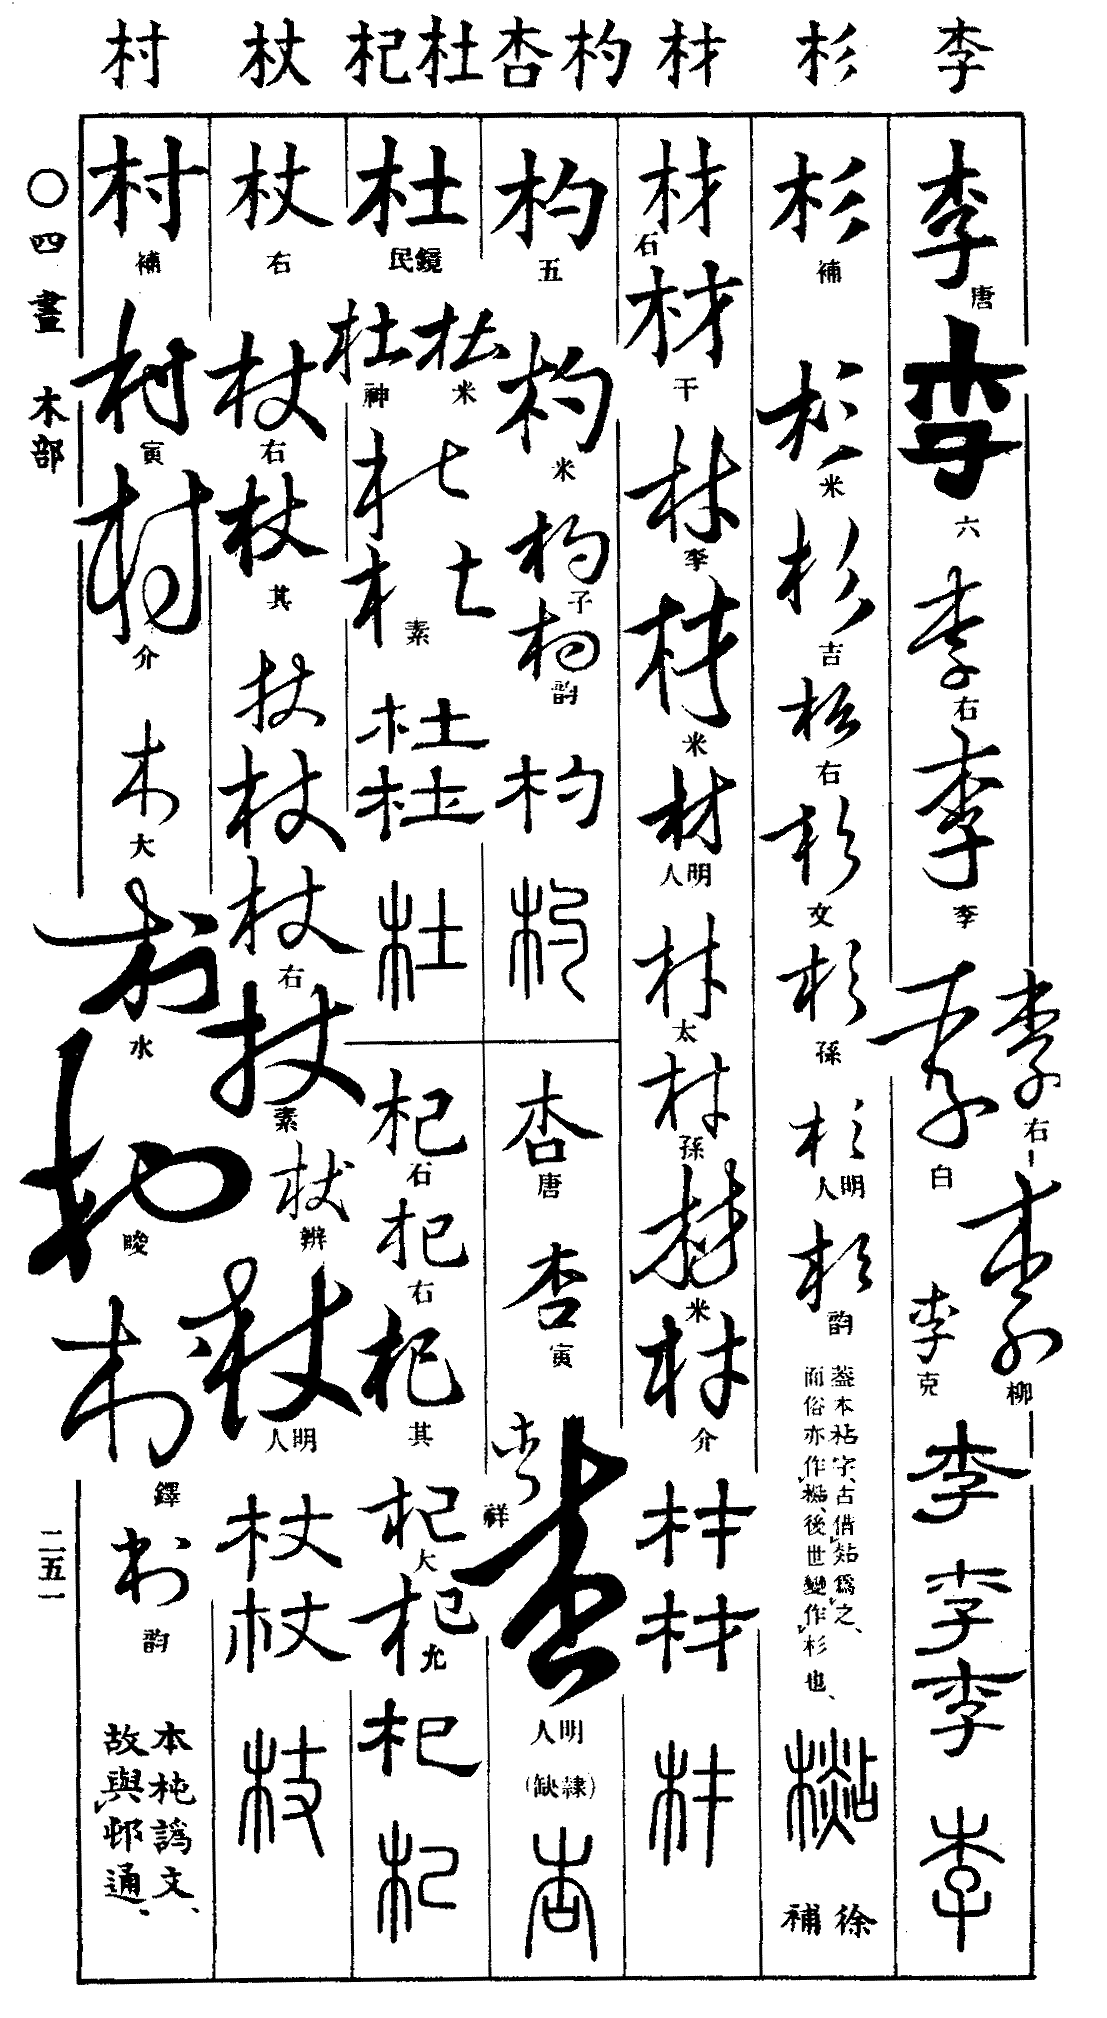 李 杉 材 杓 杏 杜 杞 杖 村
李 唐
李 六
李 右
李 李
李 右
李 白
李 柳
李 克
李
李
李
李
杉 補
杉 米
杉 吉
杉 右
杉 文
杉 孫
杉 明人
杉 韵
葢本秥字、古借䊀爲之、
而俗亦作𣝕、後世變作杉也、
徐補
材 石
材 干
材 李
材 米
材 明人
材 太
材 孫
材 米
材 介
材
材
材
杓 五
杓 米
杓 子
杓 韵
杓
杓
杏 唐
杏 寅
杏 祥
杏 明人
(缺隷)
杏
杜 鏡民
杜 米
杜 神
杜
杜 素
杜
杜
杜
杞 石
杞 右
杞 其
杞 大
杞 允
杞
杞
杖 右
杖 右
杖 其
杖
杖
杖 右
杖 素
杖 辨
杖 明人
杖
杖
杖
村 補
村 寅
村 介
村 大
村 水
村 畯
村 鐸
村 韵
本杶譌文、
故與邨通、
〇四畫 木部
二五一